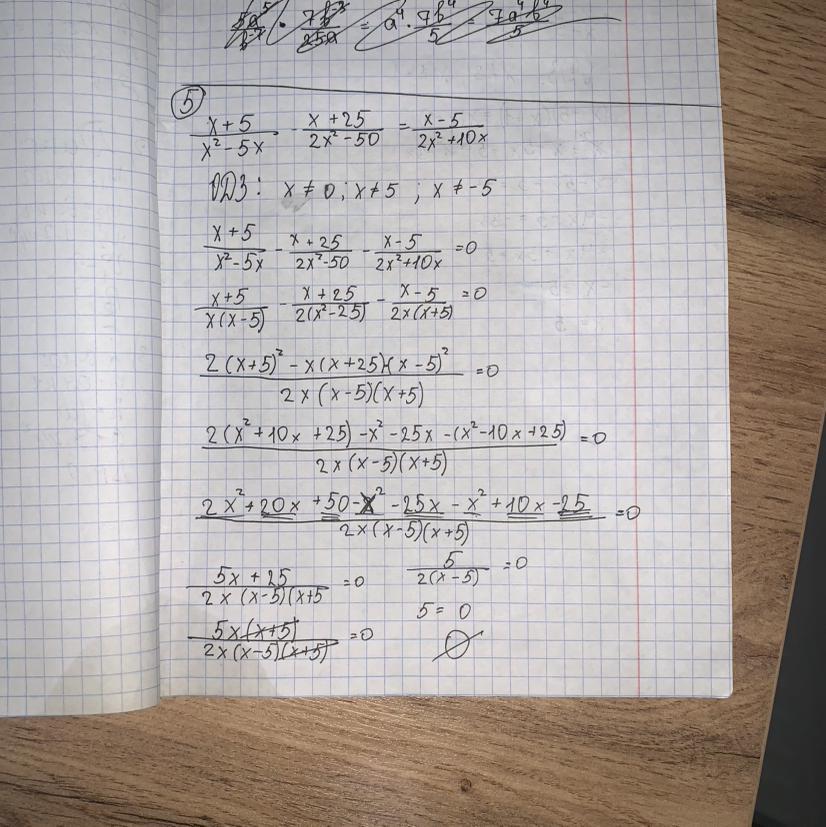 5a⁵/b⁷ · 7b³/25a = a⁴ · 7b⁴/5 = 7a⁴b⁴/5
5
(x+5)/(x²-5x) - (x+25)/(2x²-50) = (x-5)/(2x²+10x)
ОДЗ: x ≠ 0; x ≠ 5 ; x ≠ -5
(x+5)/(x²-5x) - (x+25)/(2x²-50) - (x-5)/(2x²+10x) = 0
(x+5)/(x(x-5)) - (x+25)/(2(x²-25)) - (x-5)/(2x(x+5)) = 0
(2(x+5)² - x(x+25)-(x-5)²)/(2x(x-5)(x+5)) = 0
(2(x²+10x+25) - x² - 25x - (x²-10x+25))/(2x(x-5)(x+5)) = 0
(2x²+20x+50-x²-25x-x²+10x-25)/(2x(x-5)(x+5)) = 0
(5x+25)/(2x(x-5)(x+5) = 0
(5x(x+5))/(2x(x-5)(x+5)) = 0
5/(2(x-5)) = 0
5 = 0
∅